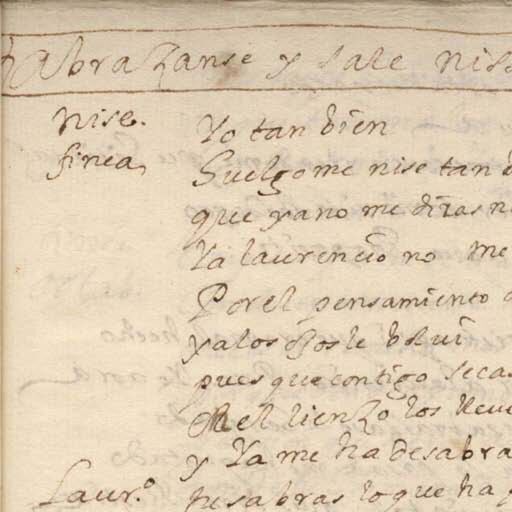 Abrazanse y sale nis
nise. Yo tan bien
finea, Huelgome nise tan
que ya no me diras n
Ya laurencio no me
Por el pensamiento
ya los ojos le bolui
pues que contigo se cas
el lienzo los lleu
y Ya me ha desabra
Laur.º tu sabras lo que ha